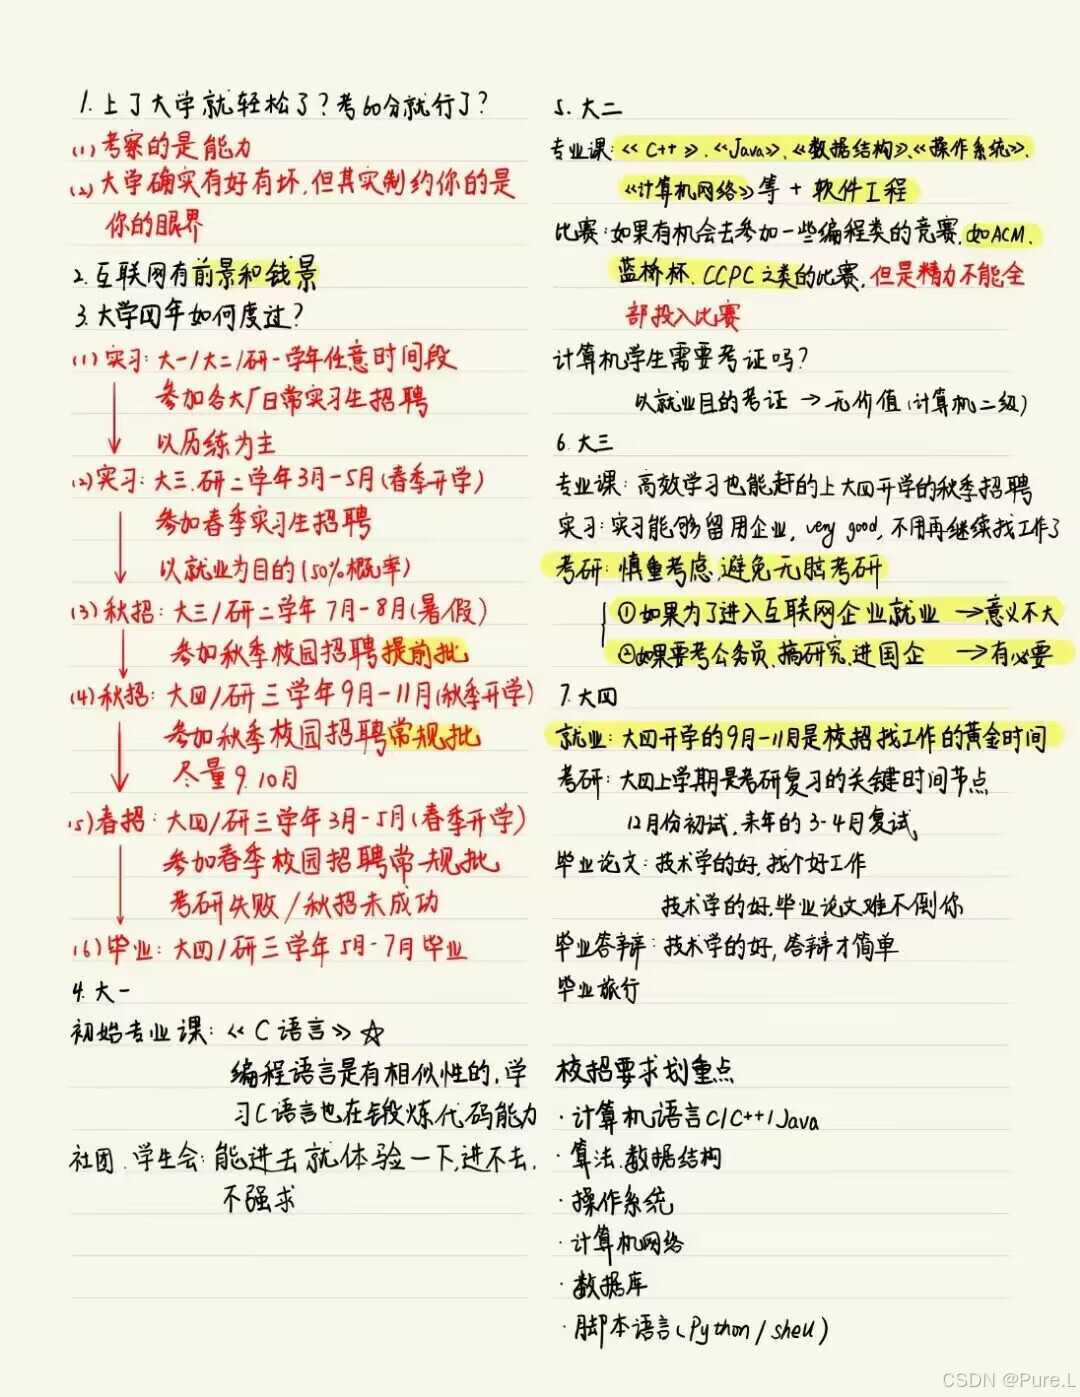 1. 上了大学就轻松了？考60分就行了？
(1) 考察的是能力
(2) 大学确实有好有坏，但其实制约你的是
你的眼界
2. 互联网有前景和钱景
3. 大学四年如何度过？
(1) 实习：大一/大二/研一学年任意时间段
参加各大厂日常实习生招聘
以历练为主
(2) 实习：大三、研二学年3月-5月(春季开学)
参加春季实习生招聘
以就业为目的(50%概率)
(3) 秋招：大三/研二学年 7月-8月(暑假)
参加秋季校园招聘提前批
(4) 秋招：大四/研三学年9月-11月(秋季开学)
参加秋季校园招聘常规批
尽量9、10月
(5) 春招：大四/研三学年3月-5月(春季开学)
参加春季校园招聘常规批
考研失败/秋招未成功
(6) 毕业：大四/研三学年5月-7月毕业
4. 大一
初始专业课：《C语言》☆
编程语言是有相似性的，学
习C语言也在锻炼代码能力
社团、学生会：能进去就体验一下，进不去，
不强求
5. 大二
专业课：《C++》、《Java》、《数据结构》、《操作系统》、
《计算机网络》等 + 软件工程
比赛：如果有机会去参加一些编程类的竞赛，如ACM、
蓝桥杯、CCPC之类的比赛，但是精力不能全
部投入比赛
计算机学生需要考证吗？
以就业目的考证 → 无价值(计算机二级)
6. 大三
专业课：高效学习也能赶的上大四开学的秋季招聘
实习：实习能够留用企业，very good，不用再继续找工作了
考研：慎重考虑，避免无脑考研
①如果为了进入互联网企业就业 → 意义不大
②如果要考公务员、搞研究、进国企 → 有必要
7. 大四
就业：大四开学的9月-11月是校招找工作的黄金时间
考研：大四上学期是考研复习的关键时间节点
12月份初试，来年的3-4月复试
毕业论文：技术学的好，找个好工作
技术学的好，毕业论文难不倒你
毕业答辩：技术学的好，答辩才简单
毕业旅行
校招要求划重点
· 计算机语言C/C++/Java
· 算法、数据结构
· 操作系统
· 计算机网络
· 数据库
· 脚本语言(Python/shell)
CSDN @Pure.L